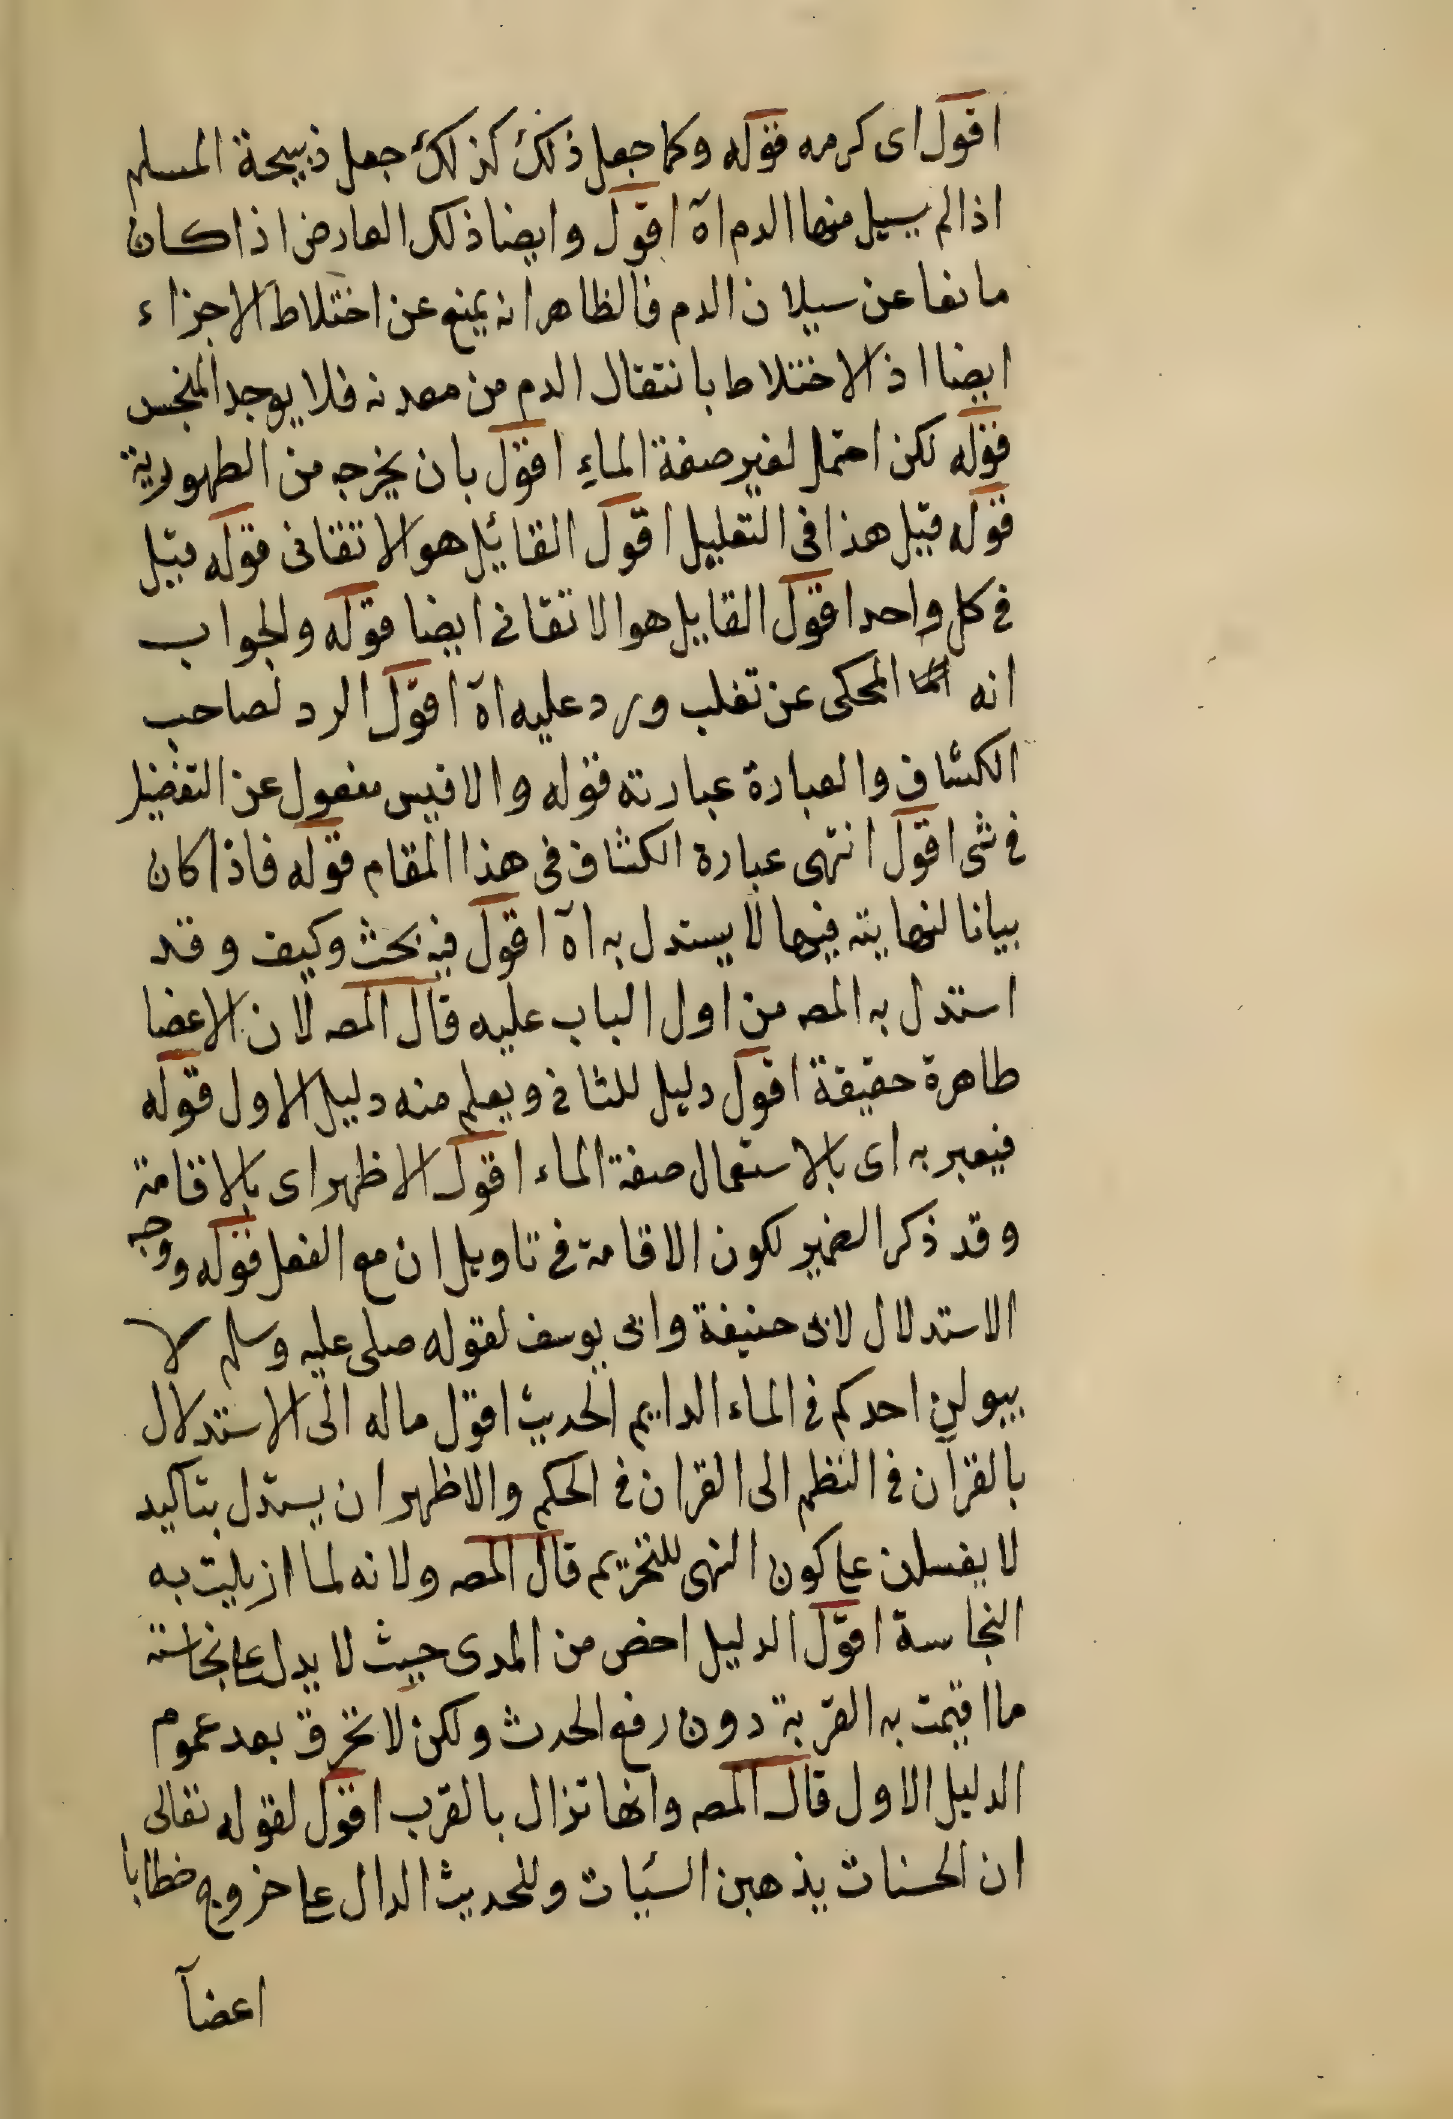 اقول اى كرمه قوله وكما جعل ذلك كذلك جعل ذبيحة المسلم
اذا لم يسيل منها الدم اه اقول وايضا ذلك العارض اذا كان
مانعا عن سيلان الدم فالظاهر انه يمنع عن اختلاط الاجزاء
ايضا اذ الاختلاط بانتقال الدم من معدنه فلا يوجد المنجس
قوله لكن احتمل لغير صفة الماء اقول بان يخرجه من الطهورية
قوله قيل هذا فى التعليل اقول القائل هو الاتقانى قوله قيل
فى كل واحد اقول القايل هو الاتقانى ايضا قوله والجواب
انه المحكى عن تغلب ورد عليه اه اقول الرد لصاحب
الكشاف والعبارة عبارته قوله والافيس منعول عن التفضيل
فى شى اقول انتهى عبارة الكشاف فى هذا المقام قوله فاذا كان
بيانا لنهايته فيها لا يستدل به اه اقول فيه بحث وكيف وقد
استدل به المصه من اول الباب عليه قال المصه لان الاعضا
طاهرة حقيقة اقول دليل للثانى ويعلم منه دليل الاول قوله
فيعبر به اى بالاستعمال صفة الماء اقول الاظهر اى بالاقامة
وقد ذكر الضمير لكون الاقامة فى تاويل ان مع الفعل قوله ووجه
الاستدلال لابى حنيفة وابى يوسف لقوله صلى عليه وسلم لا
يبولن احدكم فى الماء الدايم الحديث اقول ماله الى الاستدلال
بالقرآن فى النظم الى القران فى الحكم والاظهر ان يستدل بتاكيد
لا يغسلن على كون النهى للتحريم قال المصه ولانه لما ازيلت به
النجاسة اقول الدليل اخص من المدى حيث لا يدل على نجاسته
ما اقيمت به القربة دون رفع الحدث ولكن لا تحرق بعد عموم
الدليل الاول قال المصه وانها تزال بالقرب اقول لقوله تعالى
ان الحسنات يذهبن السيات وللحديث الدال على خروج خطايا
اعضآ